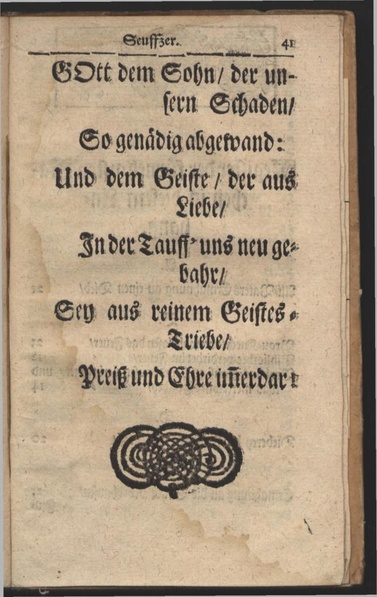 Seuffzer. 41
GOtt dem Sohn/ der un-
sern Schaden/
So genädig abgewand:
Und dem Geiste/ der aus
Liebe/
In der Tauff' uns neu ge-
bahr/
Sey aus reinem Geistes-
Triebe/
Preiß und Ehre im̃erdar!